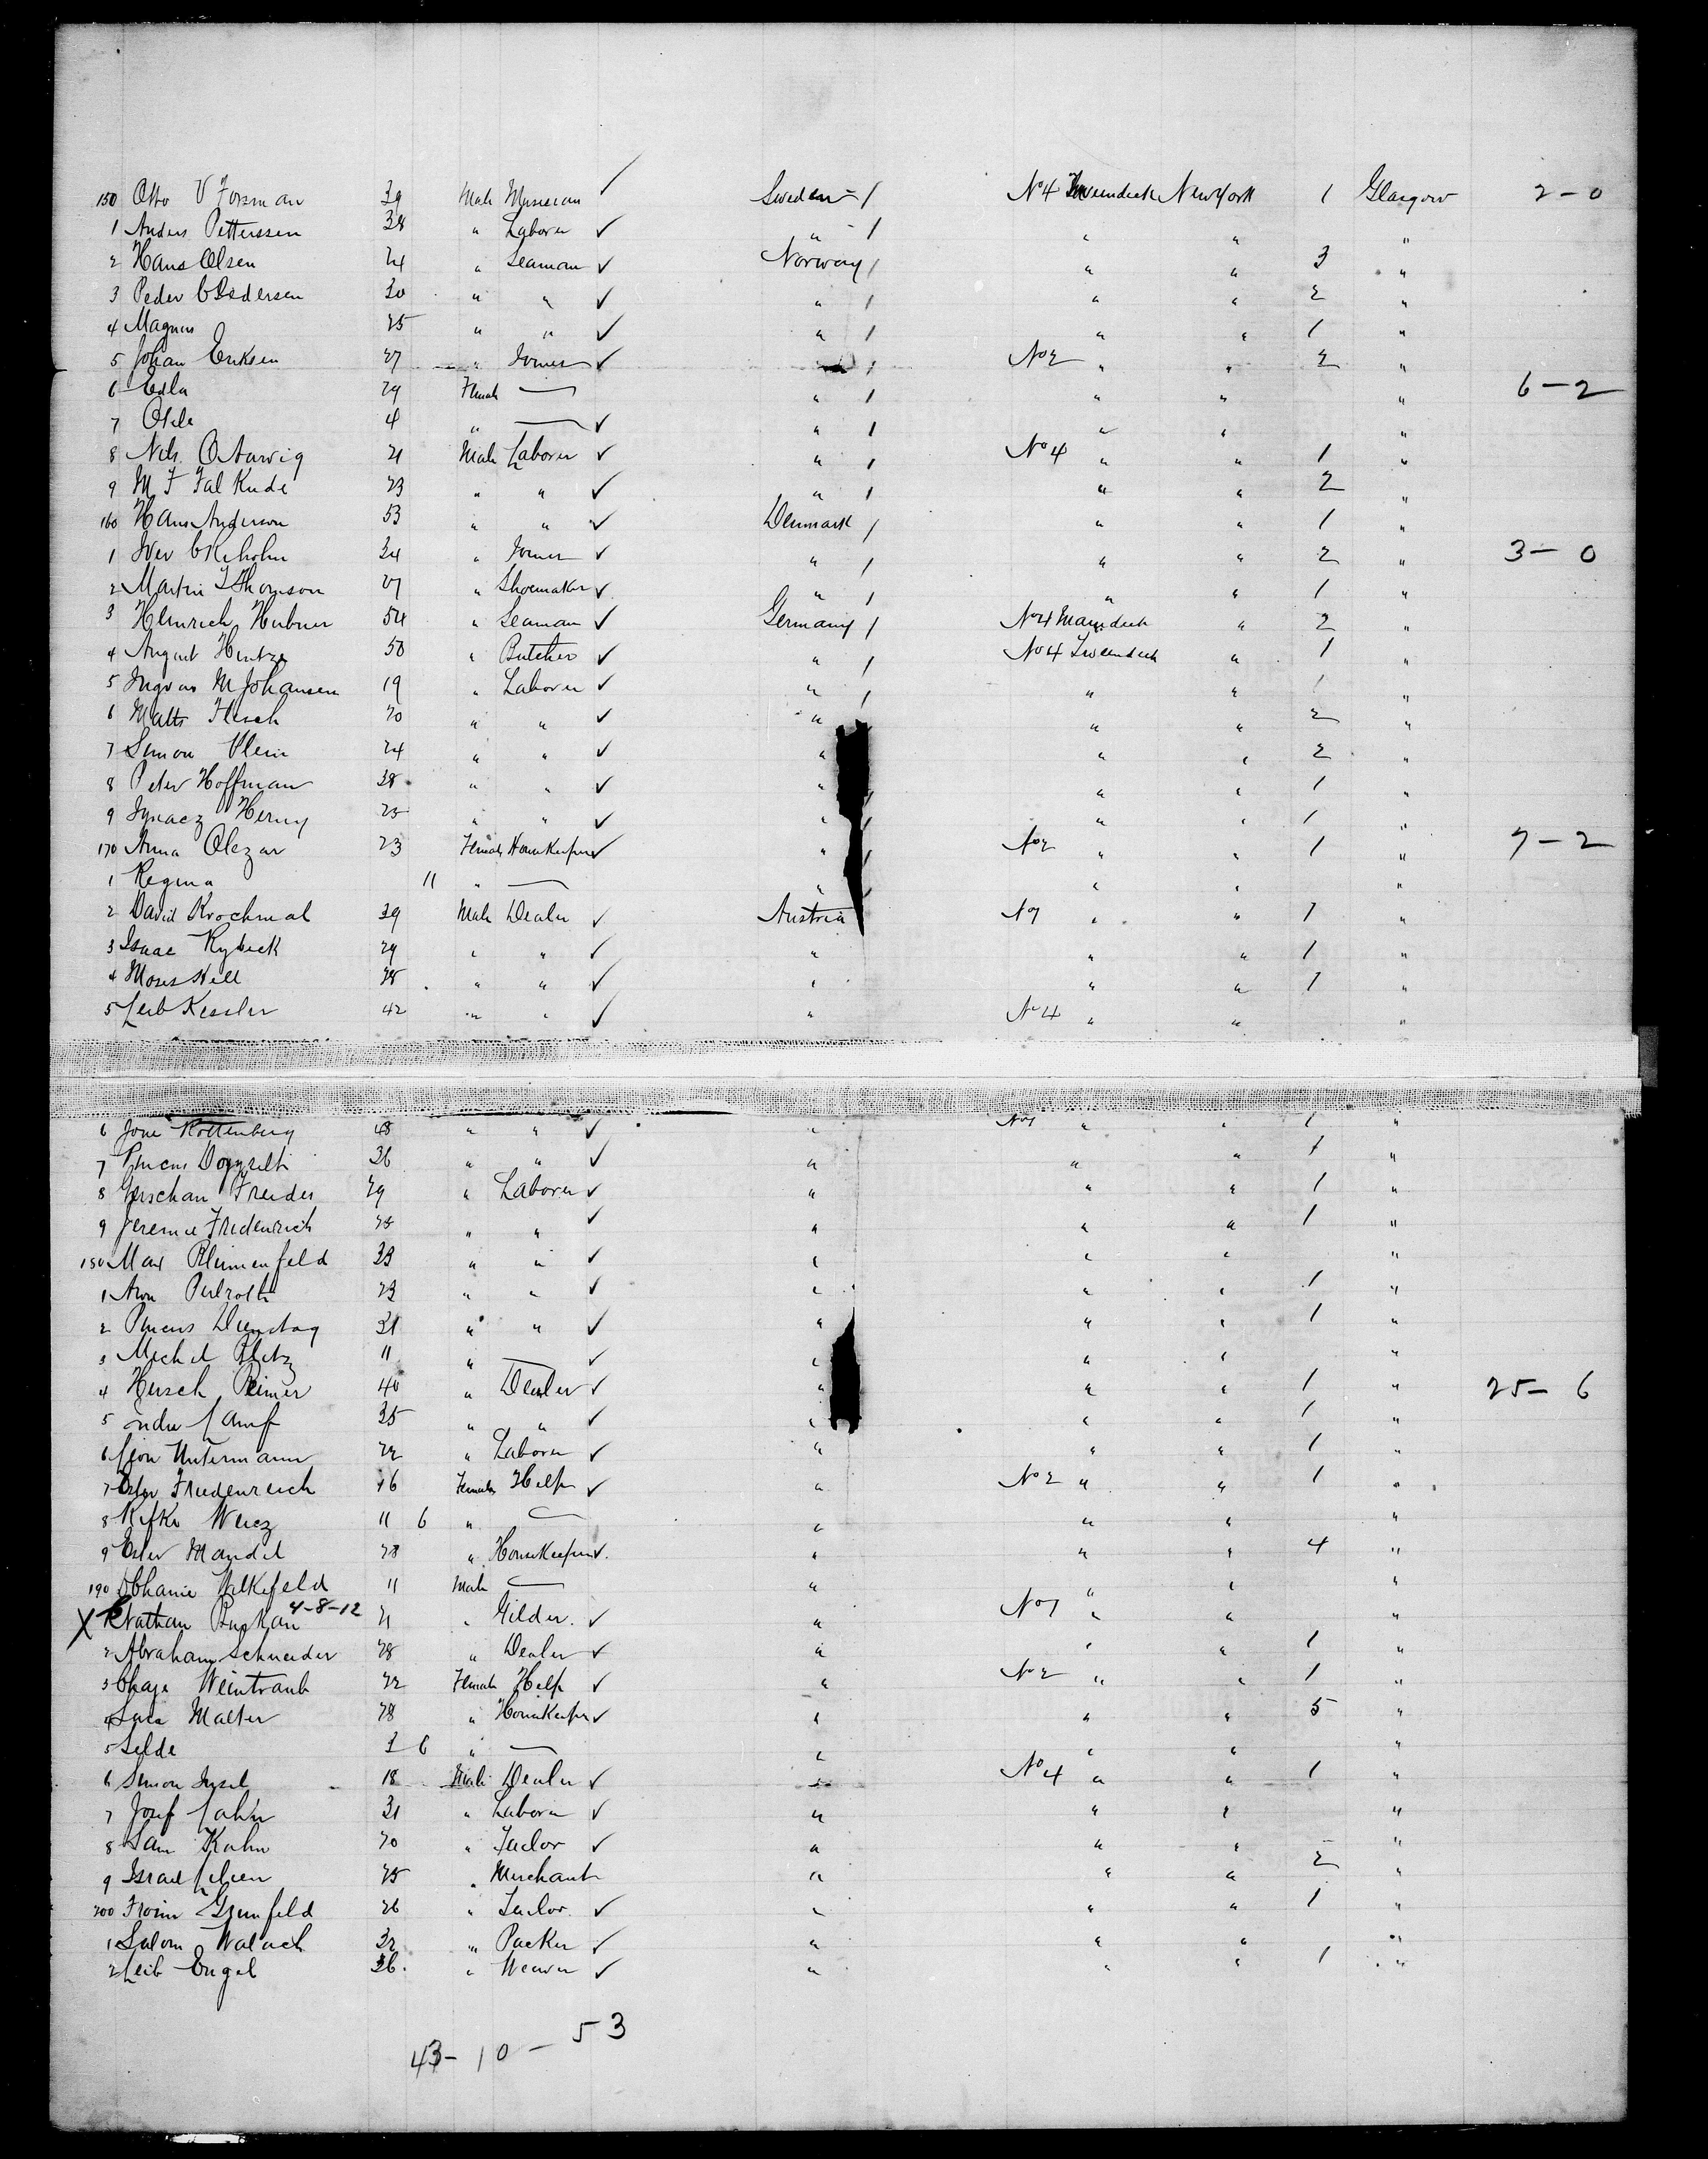 150 Otto V Forsman 39 Male Musician ✓ Sweden / No 4 Tweendeck New York 1 Glasgow 2-0
1 Anders Petterssen 38 " Laborer ✓ " / " " "
2 Hans Olsen 24 " Seaman ✓ Norway / " " 3 "
3 Peder C Pedersen 30 " " ✓ " / " " 2 "
4 Magnus 25 " " ✓ " / " " 1 "
5 Johan Eriksen 27 " Joiner ✓ " / No 2 " " 2 "
6 Edla 29 Female — " / " " " 6-2
7 4 " — ✓ " / " " "
8 Nils 21 Male Laborer ✓ " / No 4 " " 1 "
9 M F 23 " " ✓ " / " " 2 "
160 Hans Anderson 53 " " ✓ Denmark / " " 1 "
1 Iver 24 " Joiner ✓ " / " " 2 " 3-0
2 Martin Thomson 27 " Shoemaker ✓ " / " " 1 "
3 Heinrich Hubner 54 " Seaman ✓ Germany / No 4 Maindeck " 2 "
4 August Hintze 50 " Butcher ✓ " / No 4 Tweendeck " 1 "
5 Ingvar M Johansen 19 " Laborer ✓ " / " " 1 "
6 Matts Flesch 20 " " ✓ " " " 2 "
7 Simon Klein 24 " " ✓ " " " 2 "
8 Peter Hoffman 38 " " ✓ " " " 1 "
9 Ignacz Herny 25 " " ✓ " / " " 1 "
170 Anna Olezar 23 Female Housekeeper ✓ " / No 2 " " 1 " 7-2
1 Regina 11 " — " / " " "
2 David Krochmal 39 Male Dealer ✓ Austria No 1 " " 1 "
3 Isaac Rybeck 29 " " ✓ " " " 1 "
4 Moses Kell 28 " " ✓ " " " 1 "
5 Leib Kessler 42 " " ✓ " No 4 " " "
6 Jone Rottenberg 48 " " ✓ " No 1 " " 1 "
7 Pincus 36 " " ✓ " " " 1 "
8 Gerschan Freider 29 " Laborer ✓ " " " 1 "
9 Jeremie Fridenrich 28 " " ✓ " " " 1 "
180 Max Blumenfeld 33 " " ✓ " " " "
1 Aron Perlroth 23 " " ✓ " " " 1 "
2 Pincus Dienstag 31 " " ✓ " " " 1 "
3 Michel Bletz 11 " — ✓ " " " "
4 Hersch Reimer 40 " Dealer ✓ " " " 1 " 25-6
5 35 " " ✓ " " " 1 "
6 Leon Untermann 22 " Laborer ✓ " " " 1 "
7 Ester Friedenreich 16 Female Help ✓ " No 2 " " 1 "
8 Rifke 11 6 " — " " " "
9 Ester Mandel 28 " Housekeeper ✓ " " " 4 "
190 11 Male — " " " "
X 1 Nathan Buskan 4-8-12 21 " Gilder ✓ " No 1 " " "
2 Abraham Schneider 28 " Dealer ✓ " " " 1 "
3 Chaje Weintraub 22 Female Help ✓ " No 2 " " 1 "
4 Sara Malter 28 " Housekeeper ✓ " " " 5 "
5 Selde 3 6 " — " " " "
6 Simon Insel 18 Male Dealer ✓ " No 4 " " 1 "
7 Josif Jahn 31 " Laborer ✓ " " " "
8 Sam Kahn 20 " Tailor ✓ " " " "
9 Israel 25 " Merchant " " " 2 "
200 Froim Grunfeld 26 " Tailor ✓ " " " 1 "
1 Salom Walach 32 " Packer ✓ " " " "
2 Leib Engel 36 " Weaver ✓ " " " 1 "
43-10-53